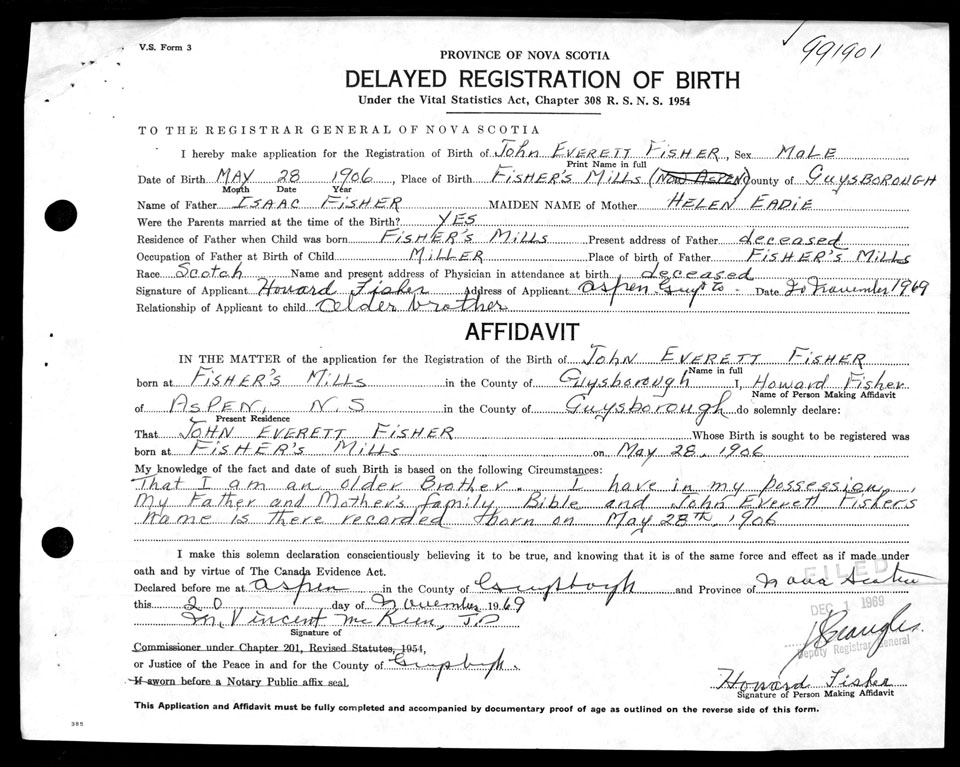 V.S. Form 3
991901
PROVINCE OF NOVA SCOTIA
DELAYED REGISTRATION OF BIRTH
Under the Vital Statistics Act, Chapter 308 R. S. N. S. 1954
TO THE REGISTRAR GENERAL OF NOVA SCOTIA
I hereby make application for the Registration of Birth of John EVERETT FISHER, Sex MALE
Print Name in full
Date of Birth MAY 28 1906, Place of Birth FISHER'S MILLS (NOW ASPEN) County of GUYSBOROUGH
Month Date Year
Name of Father ISAAC FISHER MAIDEN NAME of Mother HELEN EADIE
Were the Parents married at the time of the Birth? YES
Residence of Father when Child was born FISHER'S MILLS Present address of Father deceased
Occupation of Father at Birth of Child MILLER Place of birth of Father FISHER'S MILLS
Race Scotch Name and present address of Physician in attendance at birth deceased
Signature of Applicant Howard Fisher Address of Applicant Aspen Guys Co. Date 20 November 1969
Relationship of Applicant to child Older brother
AFFIDAVIT
IN THE MATTER of the application for the Registration of the Birth of John EVERETT FISHER
Name in full
born at FISHER'S MILLS in the County of Guysborough I, Howard Fisher
Name of Person Making Affidavit
of ASPEN, N.S in the County of Guysborough do solemnly declare:
Present Residence
That JOHN EVERETT FISHER Whose Birth is sought to be registered was
born at FISHER'S MILLS on May 28, 1906
My knowledge of the fact and date of such Birth is based on the following Circumstances:
That I am an older Brother. I have in my possession,
My Father and Mother's family Bible and John Everett Fishers
name is there recorded born on May 28th, 1906
I make this solemn declaration conscientiously believing it to be true, and knowing that it is of the same force and effect as if made under
oath and by virtue of The Canada Evidence Act.
Declared before me at Aspen in the County of Guysborough and Province of Nova Scotia
FILED
this 20 day of November 1969
DEC 1 1969
M. Vincent McKeen, J.P
Signature of
Deputy Registrar General
Commissioner under Chapter 201, Revised Statutes, 1954,
or Justice of the Peace in and for the County of Guysborough.
Howard Fisher
If sworn before a Notary Public affix seal.
Signature of Person Making Affidavit
This Application and Affidavit must be fully completed and accompanied by documentary proof of age as outlined on the reverse side of this form.
385